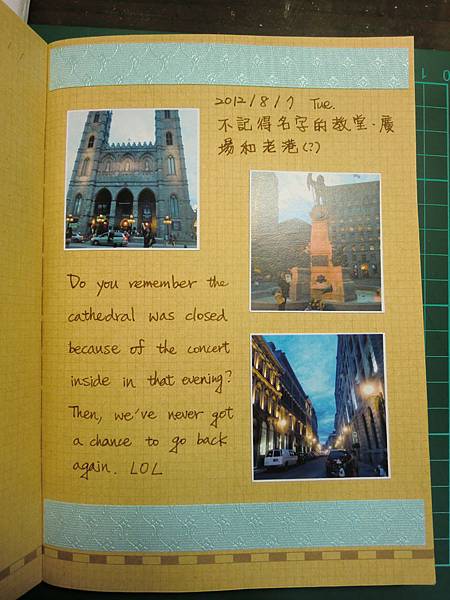 2012/8/7 Tue.
不記得名字的教堂、廣
場和老港(?)
Do you remember the
cathedral was closed
because of the concert
inside in that evening?
Then, we've never got
a chance to go back
again. LOL